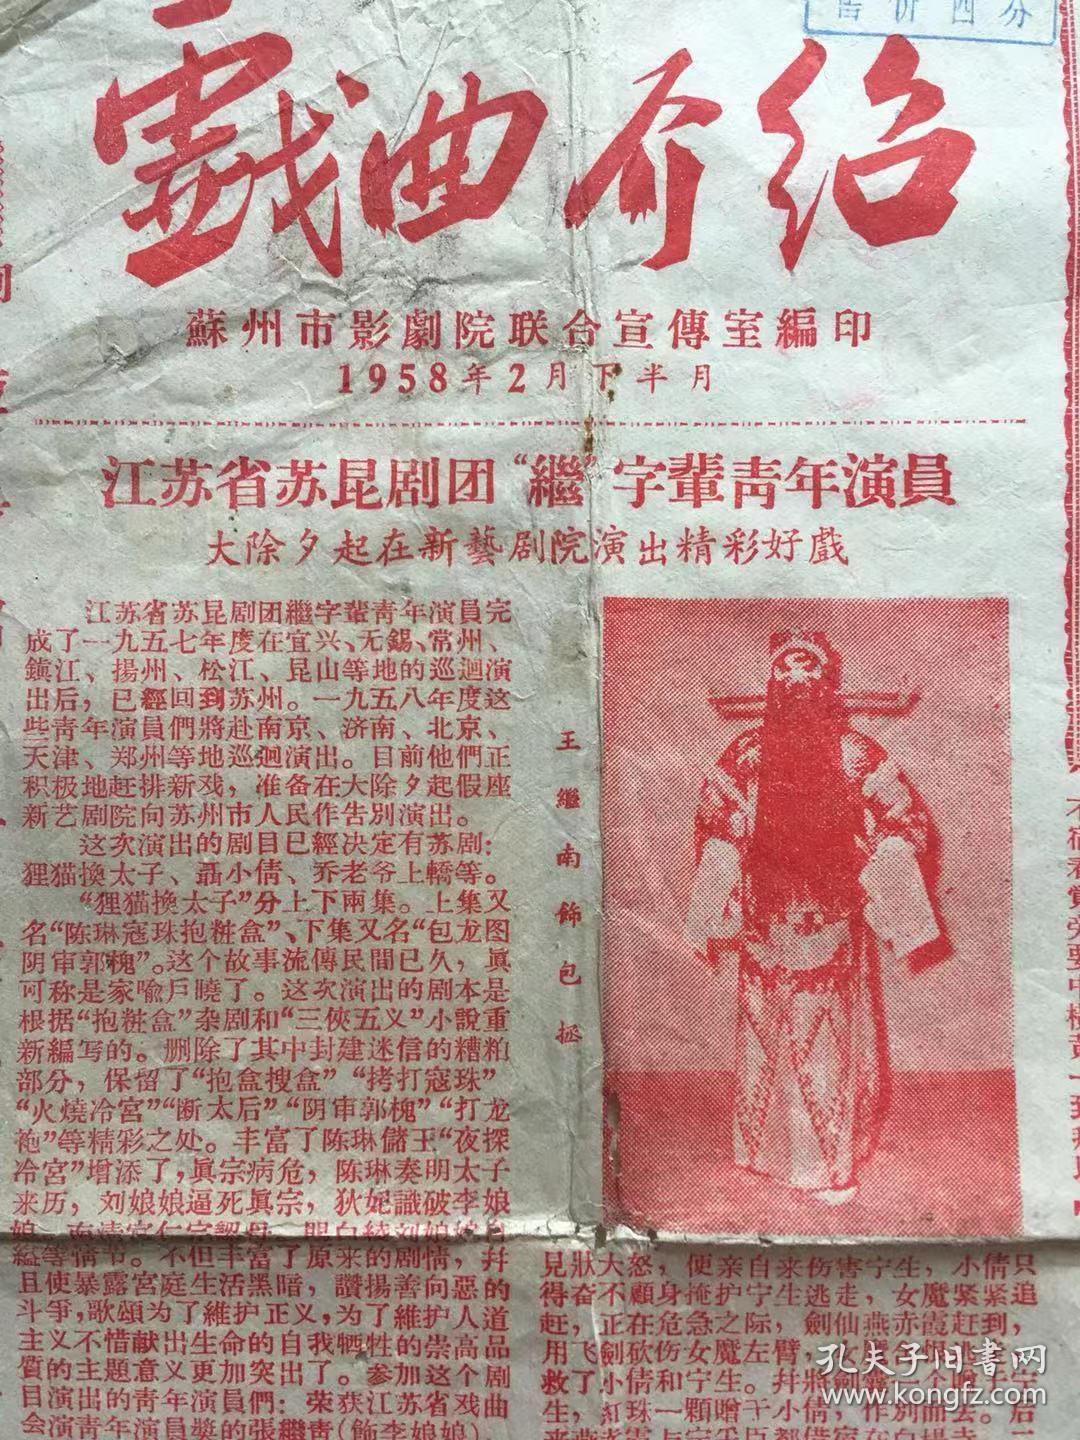 售价四分
戏曲介绍
蘇州市影劇院联合宣傳室編印
1958年2月下半月
江苏省苏昆剧团“繼”字輩靑年演員
大除夕起在新藝剧院演出精彩好戲
江苏省苏昆剧团繼字輩靑年演員完
成了一九五七年度在宜兴、无錫、常州、
鎭江、揚州、松江、昆山等地的巡迴演
出后，已經回到苏州。一九五八年度这
些靑年演員們將赴南京、济南、北京、
天津、郑州等地巡迴演出。目前他們正
积极地赶排新戏，准备在大除夕起假座
新艺剧院向苏州市人民作告別演出。
这次演出的剧目已經决定有苏剧：
狸猫換太子、聶小倩、乔老爷上轎等。
“狸猫換太子”分上下兩集。上集又
名“陈琳寇珠抱粧盒”、下集又名“包龙图
阴审郭槐”。这个故事流傳民間已久，眞
可称是家喩戶曉了。这次演出的剧本是
根据“抱粧盒”杂剧和“三俠五义”小說重
新編写的。删除了其中封建迷信的糟粕
部分，保留了“抱盒搜盒”“拷打寇珠”
“火燒冷宮”“断太后”“阴审郭槐”“打龙
袍”等精彩之处。丰富了陈琳儲王“夜探
冷宮”增添了，眞宗病危，陈琳奏明太子
来历，刘娘娘逼死眞宗，狄妃識破李娘
縊等情节。不但丰富了原来的剧情，幷
且使暴露宮庭生活黑暗，讚揚善向惡的
斗爭，歌頌为了維护正义，为了維护人道
主义不惜献出生命的自我牺牲的崇高品
質的主題意义更加突出了。参加这个剧
目演出的靑年演員們：荣获江苏省戏曲
会演靑年演員獎的張繼靑（飾李娘娘）
王繼南飾包拯
見狀大怒，便亲自来伤害宁生，小倩只
得奋不顧身掩护宁生逃走，女魔紧紧追
赶，正在危急之际，劍仙燕赤霞赶到，
用飞劍砍伤女魔左臂，女魔
救了小倩和宁生。幷將劍囊一个贈于宁
生，紅珠一顆贈于小倩，作別而去。后
孔夫子旧书网
www.kongfz.com